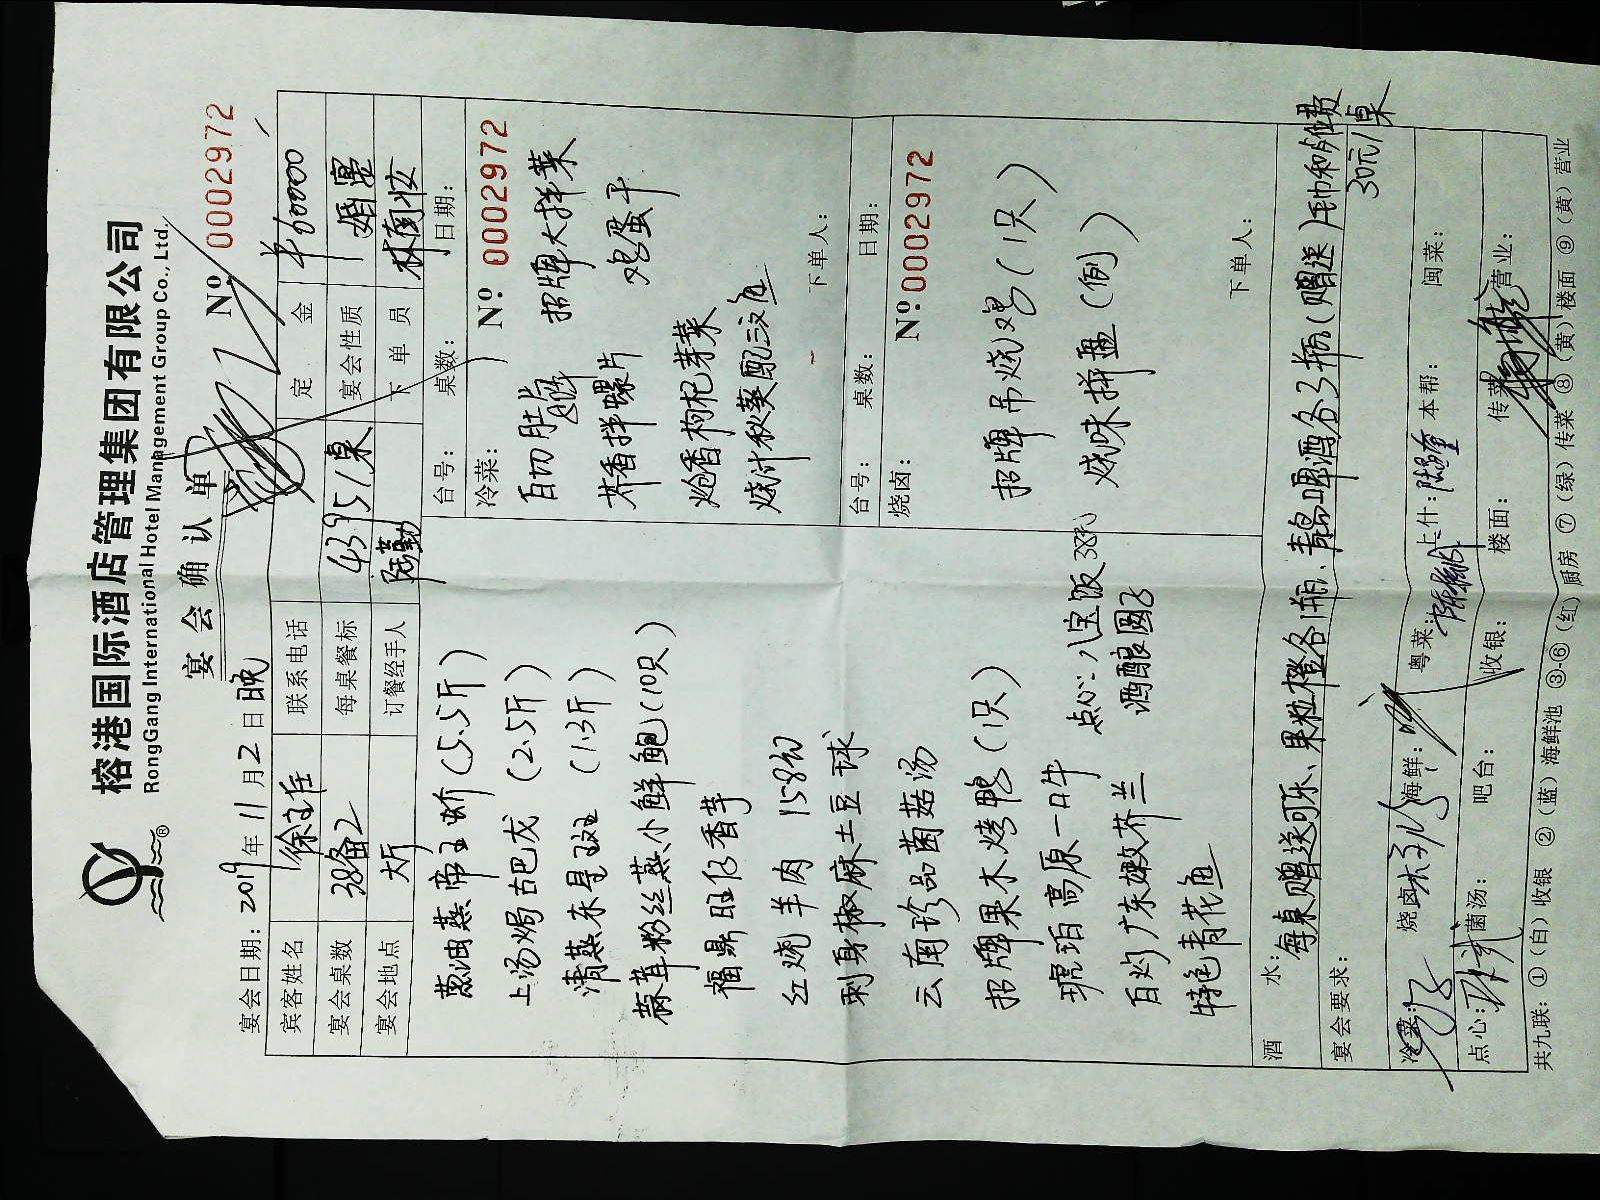 榕港国际酒店管理集团有限公司
RongGang International Hotel Management Group Co., Ltd.
宴会确认单
№ 0002972
宴会日期: 2019 年 11 月 2 日 晚
宾客姓名 徐主任 联系电话 定金
宴会桌数 38备2 每桌餐标 4395/桌 宴会性质 婚宴
宴会地点 大厅 订餐经手人 下单员 林南妆
葱油蒸帝王蚧(5.5斤)
上汤焗古巴龙(2.5斤)
清蒸东星斑(1.3斤)
蒜茸粉丝蒸小鲜鲍(10只)
福鼎旺仔香芋
红烧羊肉 158切
刺身椒麻土豆球
云南珍品菌菇汤
招牌果木烤鸭(1只)
琥珀高原一口牛
百灼广东嫩芥兰
特色青花鱼
点心: 八宝饭38元
酒酿圆子
台号: 桌数: 日期:
冷菜: № 0002972
白切肚片 招牌大拌菜
芥香拌螺片 鸡蛋干
炝香枸杞芽菜
烧汁秋葵配三文鱼
下单人:
台号: 桌数: 日期:
烧卤: №0002972
招牌吊烧鸡(1只)
烧味拼盘(例)
下单人:
酒水: 每桌赠送可乐、果粒橙各1瓶、青岛啤酒各3瓶(赠送)毛巾和餐位费
30元/桌
宴会要求:
冷菜: 烧卤: 海鲜: 粤菜: 上什: 本帮: 闽菜:
点心: 菌汤: 吧台: 收银: 楼面: 传菜: 营业:
共九联: ①(白)收银 ②(蓝)海鲜池 ③-⑥(红)厨房 ⑦(绿)传菜 ⑧(黄)楼面 ⑨(黄)营业